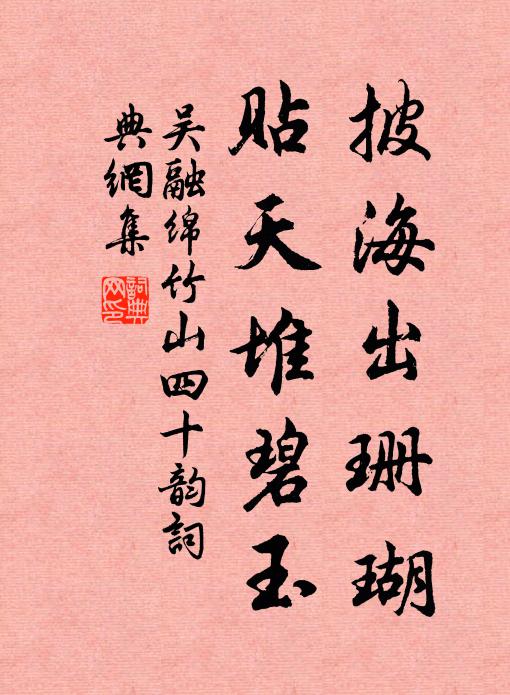 披海出珊瑚
貼天堆碧玉
吴融绵竹山四十韵詞
典網集
詞典网印